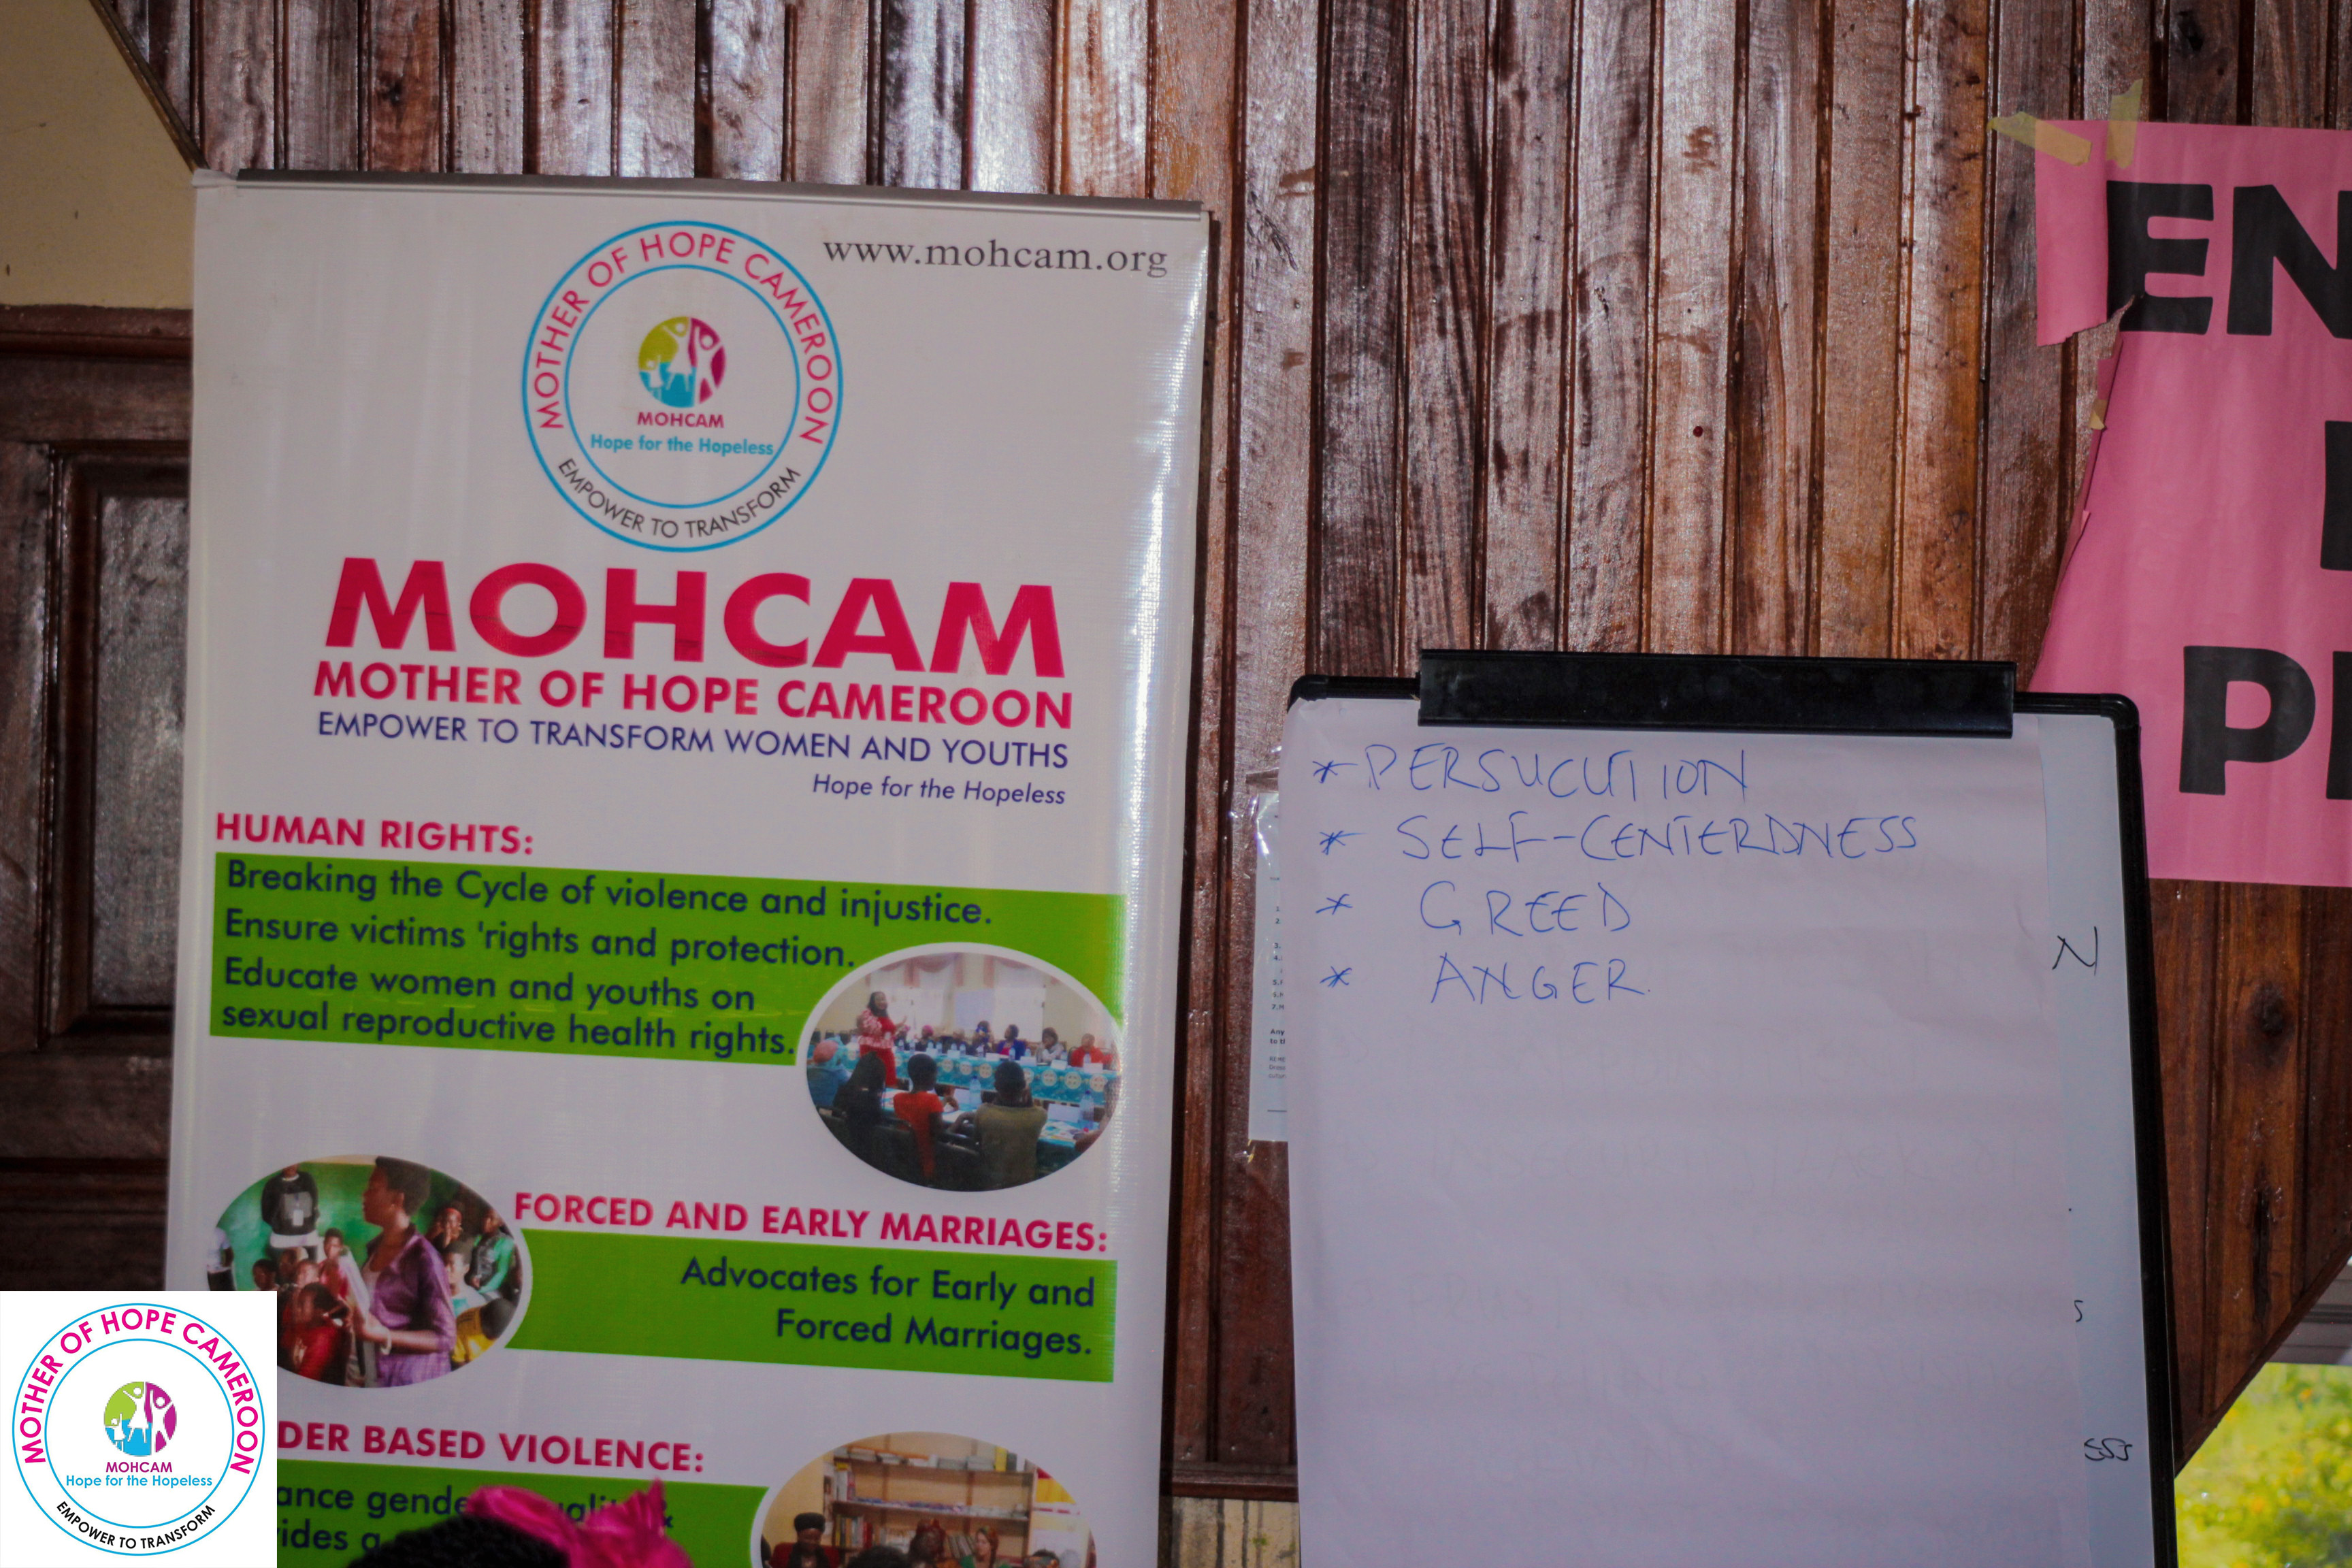 www.mohcam.org
MOTHER OF HOPE CAMEROON
MOHCAM
Hope for the Hopeless
EMPOWER TO TRANSFORM
MOHCAM
MOTHER OF HOPE CAMEROON
EMPOWER TO TRANSFORM WOMEN AND YOUTHS
Hope for the Hopeless
HUMAN RIGHTS:
Breaking the Cycle of violence and injustice.
Ensure victims 'rights and protection.
Educate women and youths on
sexual reproductive health rights.
FORCED AND EARLY MARRIAGES:
Advocates for Early and
Forced Marriages.
DER BASED VIOLENCE:
* PERSUCUTION
* SELF-CENTERDNESS
* GREED
* ANGER
N
S
SSS
EN
P
MOTHER OF HOPE CAMEROON
MOHCAM
Hope for the Hopeless
EMPOWER TO TRANSFORM